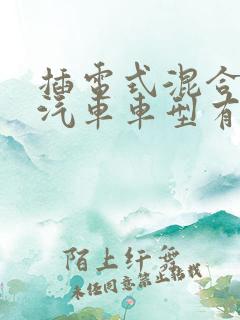 插电式混合
汽车车型有
陌上纤舞
未经同意禁止转载